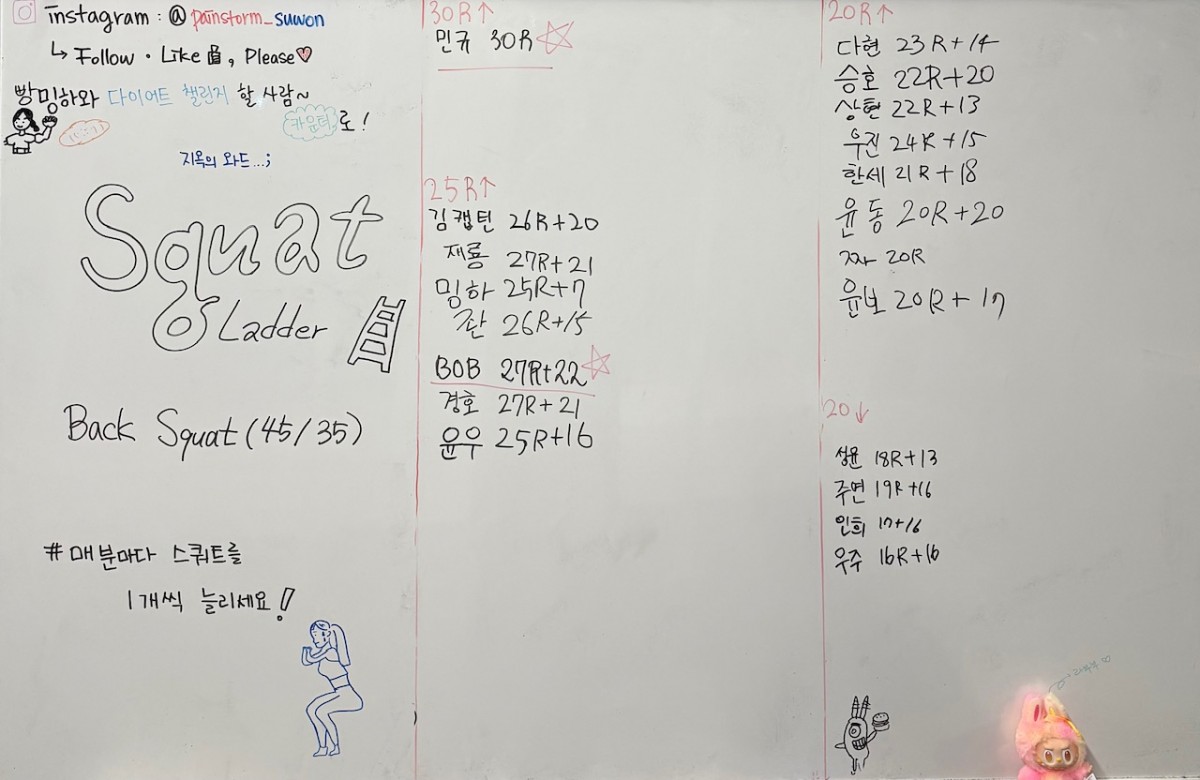 instagram : @ painstorm_suwon
↳ Follow · Like , Please♡
빵밍하와 다이어트 챌린지 할 사람~
카운터로!
지옥의 와드...;
Squat
Ladder
Back Squat (45/35)
# 매분마다 스쿼트를
1개씩 늘리세요!
30R↑
민규 30R☆
25R↑
김캡틴 26R+20
재룡 27R+21
밍하 25R+7
쫜 26R+15
BOB 27R+22☆
경호 27R+21
윤우 25R+16
20R↑
다현 23R+14
승호 22R+20
상현 22R+13
우진 24R+15
한세 21R+18
윤동 20R+20
짜 20R
윤보 20R+17
20↓
성윤 18R+13
주연 19R+16
인희 17+16
우주 16R+16